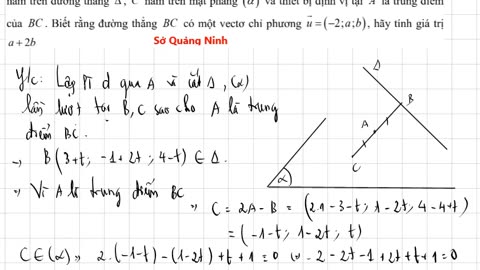 nằm trên đường thẳng Δ, C nằm trên mặt phẳng (α) và thiết bị định vị tại A là trung điểm
của BC. Biết rằng đường thẳng BC có một vectơ chỉ phương u⃗ = (−2; a; b), hãy tính giá trị
a + 2b
Sở Quảng Ninh
Y/c: Lập Pt d qua A và cắt Δ, (α)
lần lượt tại B, C sao cho A là trung
điểm BC.
→ B(3+t; −1+2t; 4−t) ∈ Δ.
→ Vì A là trung điểm BC
→ C = 2A − B = (2.1−3−t; 1−2t; 4−4+t)
= (−1−t; 1−2t; t)
C∈(α) → 2.(−1−t) − (1−2t) + t + 1 = 0 ⇔ −2−2t−1+2t+t+1=0
Δ
B
A
C
α